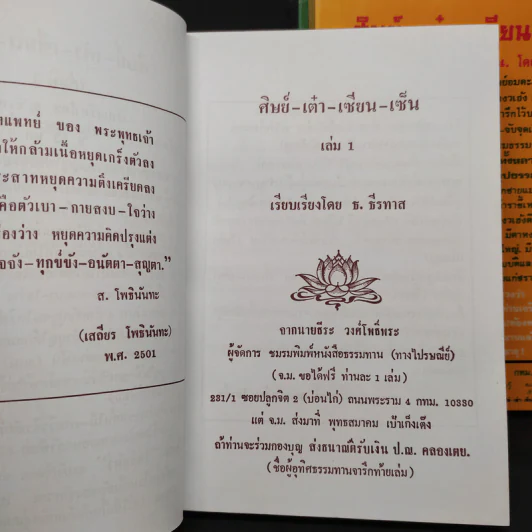 แพทย์ ของ พระพุทธเจ้า
ให้กล้ามเนื้อหยุดเกร็งตัวลง
ระสาทหยุดความตึงเครียดลง
คือตัวเบา-กายสงบ-ใจว่าง
องว่าง หยุดความคิดปรุงแต่ง
จจัง-ทุกข์ขัง-อนัตตา-สุญตา.”
ส. โพธินันทะ
(เสถียร โพธินันทะ)
พ.ศ. 2501
ศิษย์-เต๋า-เซียน-เซ็น
เล่ม 1
เรียบเรียงโดย ธ. ธีรทาส
จากนายธีระ วงศ์โพธิ์พระ
ผู้จัดการ ชมรมพิมพ์หนังสือธรรมทาน (ทางไปรษณีย์)
(จ.ม. ขอได้ฟรี ท่านละ 1 เล่ม)
231/1 ซอยปลูกจิต 2 (บ่อนไก่) ถนนพระราม 4 กทม. 10330
แต่ จ.ม. ส่งมาที่ พุทธสมาคม เป้าเก็งเต๊ง
ถ้าท่านจะร่วมกองบุญ ส่งธนาณัติรับเงิน ป.ณ. คลองเตย.
(ชื่อผู้อุทิศธรรมทานจารึกท้ายเล่ม)